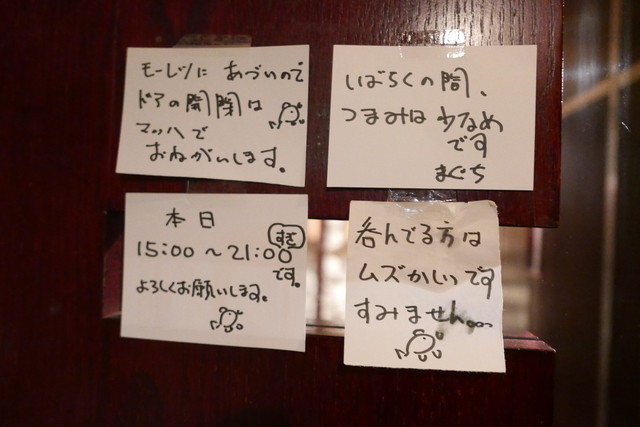 モーレツに あづいので
ドアの開閉は
マッハで
おねがいします。
しばらくの間、
つまみは少なめ
です
まぐち
本日
15:00〜21:00すぎ
です。
よろしくお願いします。
呑んでる方は
ムズかしいです
すみません。。。